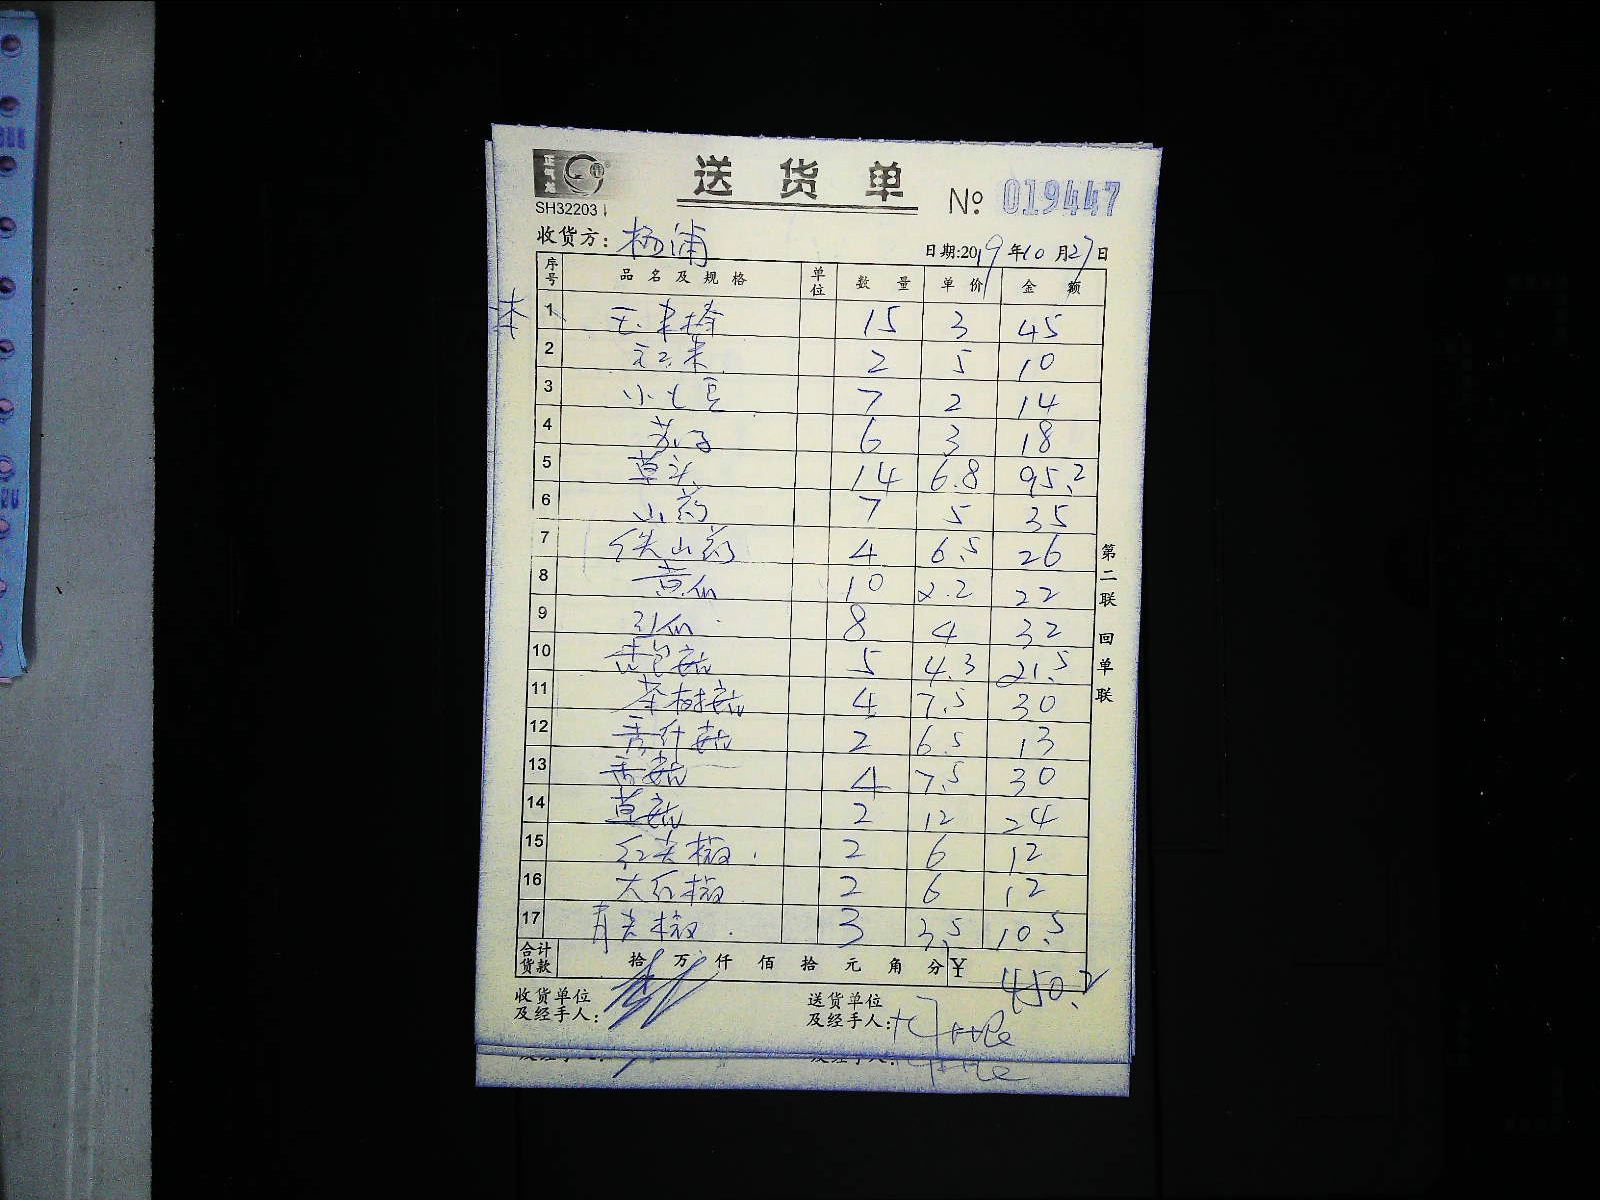 正气龙
SH32203
送货单
№ 019447
收货方：杨浦
日期:2019年10月27日
序号 品名及规格 单位 数量 单价 金额
1 玉米棒 15 3 45
2 2 5 10
3 小土豆 7 2 14
4 6 3 18
5 草头 14 6.8 95.2
6 山药 7 5 35
7 铁山药 4 6.5 26
8 黄瓜 10 2.2 22
9 8 4 32
10 菇 5 4.3 21.5
11 茶树菇 4 7.5 30
12 秀针菇 2 6.5 13
13 香菇 4 7.5 30
14 草菇 2 12 24
15 红尖椒 2 6 12
16 大红椒 2 6 12
17 青尖椒 3 3.5 10.5
合计货款 拾 万 仟 佰 拾 元 角 分 ¥ 450.2
收货单位及经手人：
送货单位及经手人：
第二联 回单联